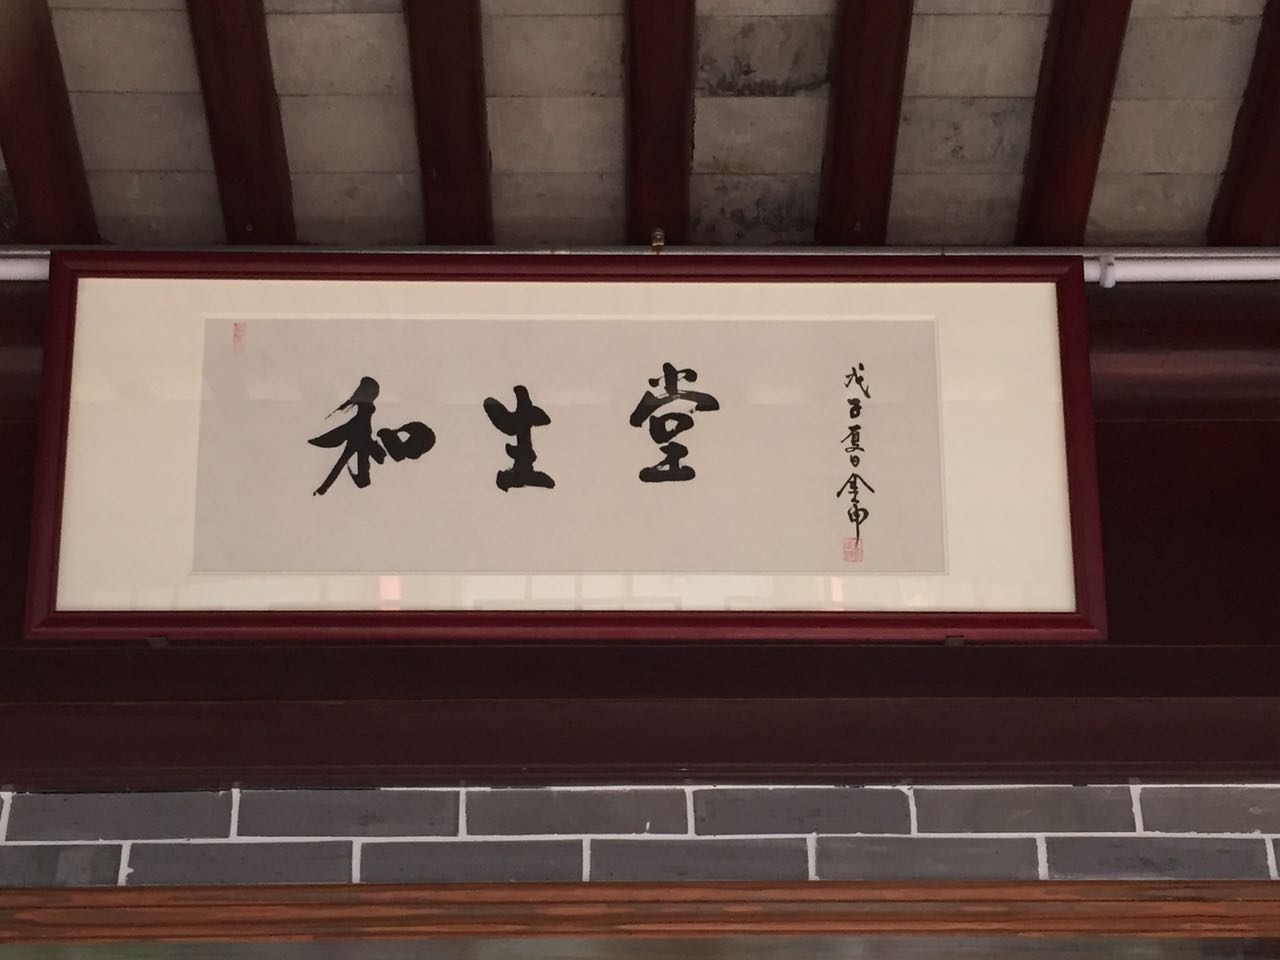 和生堂
戊子夏日金庸